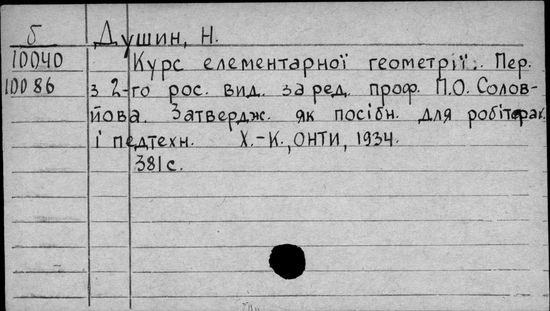 б Душин, Н.
10040 Курс елементарної геометрії. Пер.
10086 з 2-го рос. вид. за ред. проф. П.О. Солов-
йова. Затвердж. як посібн. для робітфак.
і педтехн. Х.-К., ОНТИ, 1934.
381 с.